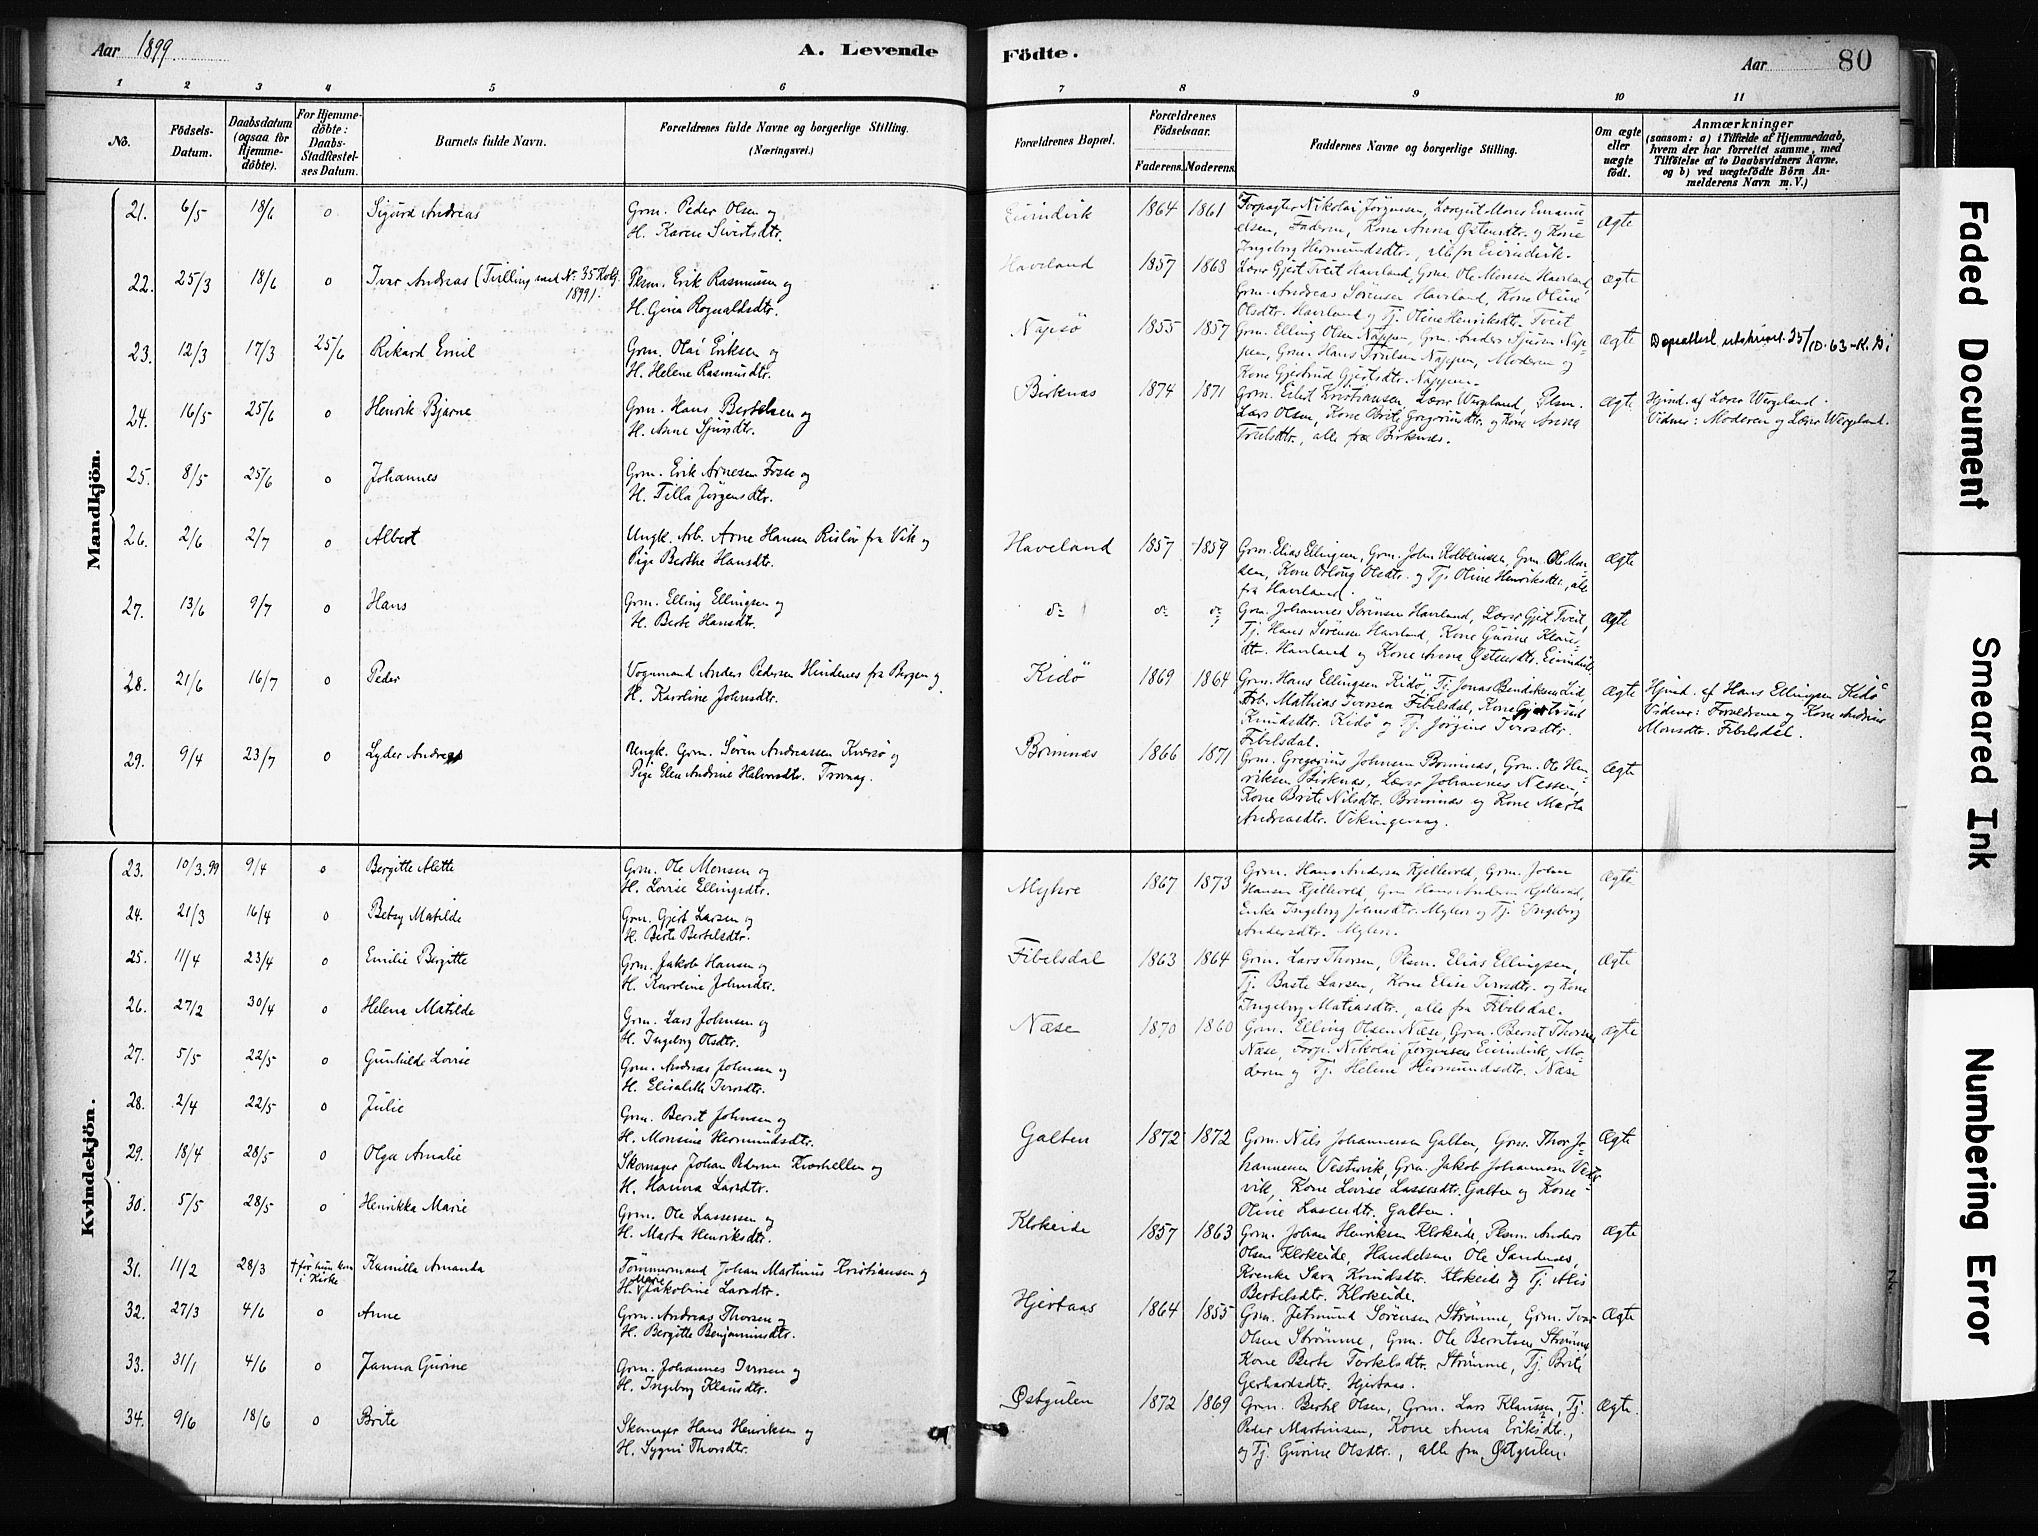 Aar 1899.
A. Levende
1 2 3 4 5 6
No.
Födsels-Datum.
Daabsdatum (ogsaa for Hjemme-döbte).
For Hjemme-döbte: Daabs-Stadfæstel-ses Datum.
Barnets fulde Navn.
Forældrenes fulde Navne og borgerlige Stilling. (Næringsvei.)
Mandkjön.
21. 6/5 18/6 o Sigurd Andreas Grm. Peder Olsen og
H. Karen Sivertsdtr.
22. 25/3 18/6 o Ivar Andreas (Tvilling med No. 35 Kvkj. 1899). Plsm. Erik Rasmusen og
H. Gina Rognaldsdtr.
23. 12/3 17/3 25/6 Rikard Emil Grm. Olai Eriksen og
H. Helene Rasmusdtr.
24. 16/5 25/6 o Henrik Bjarne Grm. Hans Bertelsen og
H. Anne Sjursdtr.
25. 8/5 25/6 o Johannes Grm. Erik Arnesen Fosse og
H. Tilla Jørgensdtr.
26. 2/6 2/7 o Albert Ungk. Arb. Arne Hansen Risløv fra Vik og
Pige Berthe Hansdtr.
27. 13/6 9/7 o Hans Grm. Elling Ellingsen og
H. Berte Hansdtr.
28. 21/6 16/7 o Peder Vognmand Anders Pedersen Hindenes fra Bergen og
H. Karoline Johnsdtr.
29. 9/4 23/7 o Lyder Andreas Ungk. Grm. Søren Andreassen Kversø og
Pige Elen Andrine Halvorsdtr.
Kvindekjön.
23. 10/3.99 9/4 o Bergitte Alette Grm. Ole Monsen og
H. Lovise Ellingsdtr.
24. 21/3 16/4 o Betsy Matilde Grm. Gjert Larsen og
H. Berte Bertelsdtr.
25. 11/4 23/4 o Emilie Bergitte Grm. Jakob Hansen og
H. Karoline Johnsdtr.
26. 27/2 30/4 o Helena Matilde Grm. Lars Johnsen og
H. Ingeborg Olsdtr.
27. 5/5 22/5 o Gunhilde Lovise Grm. Andreas Johnsen og
H. Elisabeth Iversdtr.
28. 2/4 22/5 o Julie Grm. Bernt Johnsen og
H. Monsine Hermundsdtr.
29. 18/4 28/5 o Olga Amalie Skomager Johan Pedersen Kvarhellen og
H. Hanna Larsdtr.
30. 5/5 28/5 o Henrikka Marie Grm. Ole Lassesen og
H. Marta Henriksdtr.
31. 11/2 28/3 † før hun kom i Kirke Kamilla Amanda Tømmermand Johan Martinus Kristiansen og
H. Marie Jakobine Larsdtr.
32. 27/3 4/6 o Anne Grm. Andreas Thorsen og
H. Bergitte Benjaminsdtr.
33. 31/1 4/6 o Janna Gurine Grm. Johannes Iversen og
H. Ingeborg Klausdtr.
34. 9/6 18/6 o Brite Skomager Hans Henriksen og
H. Sygni Thorsdtr.
Födte.
Aar 80
7 8 9 10 11
Forældrenes Bopæl.
Forældrenes Födselsaar.
Faderens. Moderens.
Faddernes Navne og borgerlige Stilling.
Om ægte eller uægte födt.
Anmærkninger
(saasom: a) i Tilfælde af Hjemmedaab, hvem der har forrettet samme, med Tilföielse af to Daabsvidners Navne, og b) ved uægtefödte Börn Anmelderens Navn m. V.)
Eivindvik 1864 1861 Forpagter Nikolai Jørgensen, Læregut Mons Emanu-
elsen, Faderen, Kone Anna Østensdtr. og Kone
Ingeborg Hermundsdtr., alle fra Eivindvik. Ægte
Haveland 1857 1863 Lærer Gjert Tveit Haveland, Grm. Ole Monsen Haveland,
Grm. Andreas Sørensen Haveland, Kone Oline
Olsdtr. Haveland og Tj. Oline Henriksdtr. Tveit Ægte
Napsø 1855 1857 Grm. Elling Olsen Nappen, Grm. Anders Sjursen Nap-
pen, Grm. Hans Troelsen Nappen, Moderen og
Kone Gjertrud Gjertsdtr. Nappen. Ægte Dåpsattest utskrevet 25/10.63 - K. Gi
Birknæs 1874 1871 Grm. Eilert Kristiansen, Lærer Wergeland, Plsm.
Lars Olsen, Kone Brite Gregoriusdtr. og Kone Anna
Troelsdtr., alle fra Birknes. Ægte Hjmd. af Lærer Wergeland.
Vidner: Moderen og Lærer Wergeland.
Haveland 1857 1859 Grm. Elias Ellingsen, Grm. John Kolbeinsen, Grm. Ole Mon-
sen, Kone Olsdtr. og Tj. Oline Henriksdtr., alle
fra Haveland. Ægte
do do do Grm. Johannes Sørensen Haveland, Lærer Gjert Tveit,
Tj. Hans Sørensen Haveland, Kone Gurine Klaus-
dtr. Haveland og Kone Anna Østensdtr. Eivindvik Ægte
Kidø 1869 1864 Grm. Hans Ellingsen Kidø, Tj. Jonas Bendiksen Lid,
Arb. Mathias Iversen Fibelsdal, Kone Gjertrud
Knudsdtr. Kidø og Tj. Jørgine Iversdtr.
Fibelsdal. Ægte Hjmd. af Hans Ellingsen Kidø
Vidner: Forældrene og Kone Andrine
Monsdtr. Fibelsdal.
Brimnæs 1866 1871 Grm. Gregorius Johnsen Brimnæs, Grm. Ole Hen-
riksen Birknæs, Lærer Johannes Nessen,
Kone Brite Nilsdtr. Brimnæs og Kone Marta
Andreasdtr. Vikingevaag. Ægte
Myhre 1867 1873 Grm. Hans Andersen Kjellevold, Grm. Johan
Hansen Kjellevold, Grm Hans Andersen Kjellevold,
Enke Ingeborg Johnsdtr. Myhre og Tj. Ingeborg
Andersdtr. Myhre. Ægte
Fibelsdal 1863 1864 Grm. Lars Thorsen, Plsm. Elias Ellingsen,
Tj. Baste Larsen, Kone Elise Iversdtr. og Kone
Ingeborg Matiasdtr., alle fra Fibelsdal. Ægte
Næse 1870 1860 Grm. Elling Olsen Næse, Grm. Bernt Thorsen
Næse, Forp. Nikolai Jørgensen Eivindvik, Mo-
deren og Tj. Helene Hermundsdtr. Næse Ægte
Galten 1872 1872 Grm. Nils Johannessen Galten, Grm. Thor Jo-
hannessen Vestervik, Grm. Jakob Johannessen Vester-
vik, Kone Lovise Lassesdtr. Galten og Kone
Oline Lassesdtr. Galten. Ægte
Klokeide 1857 1863 Grm. Johan Henriksen Klokeide, Plsm. Anders
Olsen Klokeide, Handelsm. Ole Sandnæs,
Kvinke Sara Knudsdtr. Klokeide og Tj. Alis
Bertelsdtr. Klokeide. Ægte
Hjertaas 1864 1855 Grm. Jetmund Sørensen Strømme, Grm. Ivar
Olsen Strømme, Grm. Ole Berntsen Strømme
Kone Berte Torkelsdtr. Strømme, Tj. Brite
Gerhardsdtr. Hjertaas. Ægte
Østgulen 1872 1869 Grm. Bertil Olsen, Grm. Lars Klausen, Tj.
Peder Martinsen, Kone Anna Eriksdtr.,
og Tj. Gurine Olsdtr., alle fra Østgulen. Ægte.
Faded Document
Smeared Ink
Numbering Error